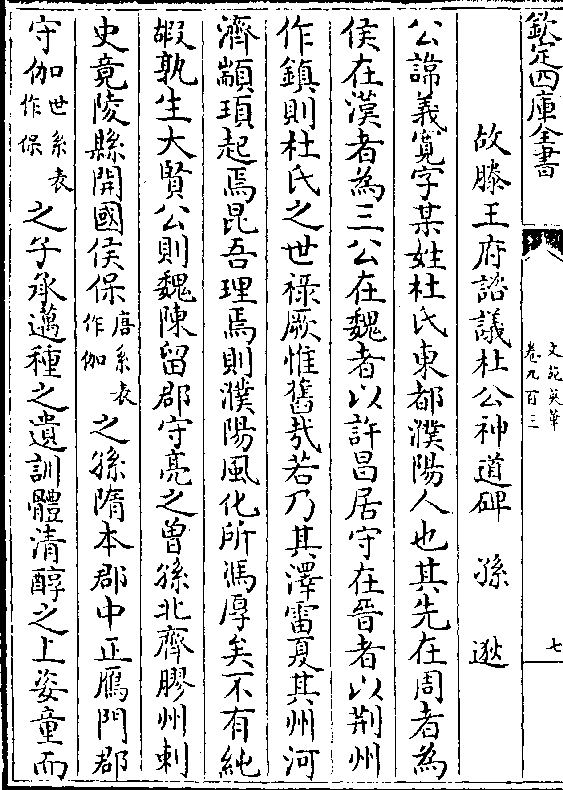 欽定四庫全書
文苑英華
卷九百三
七
故滕王府諮議杜公神道碑 孫逖
公諱義寛字某姓杜氏東都濮陽人也其先在周者為
侯在漢者為三公在魏者以許昌居守在晉者以荆州
作鎮則杜氏之世禄厥惟舊哉若乃其澤雷夏其州河
濟顓頊起焉昆吾理焉則濮陽風化所馮厚矣不有純
嘏孰生大賢公則魏陳留郡守亮之曽孫北齊膠州刺
史竟陵縣開國侯保唐系表作伽之孫隋本郡中正鴈門郡
守伽世系表作保之子承邁種之遺訓體清醇之上姿童而